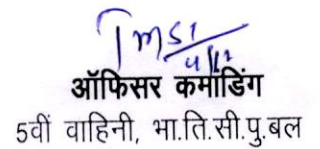 4/12
ऑफिसर कमांडिंग
5वीं वाहिनी, भा.ति.सी.पु.बल